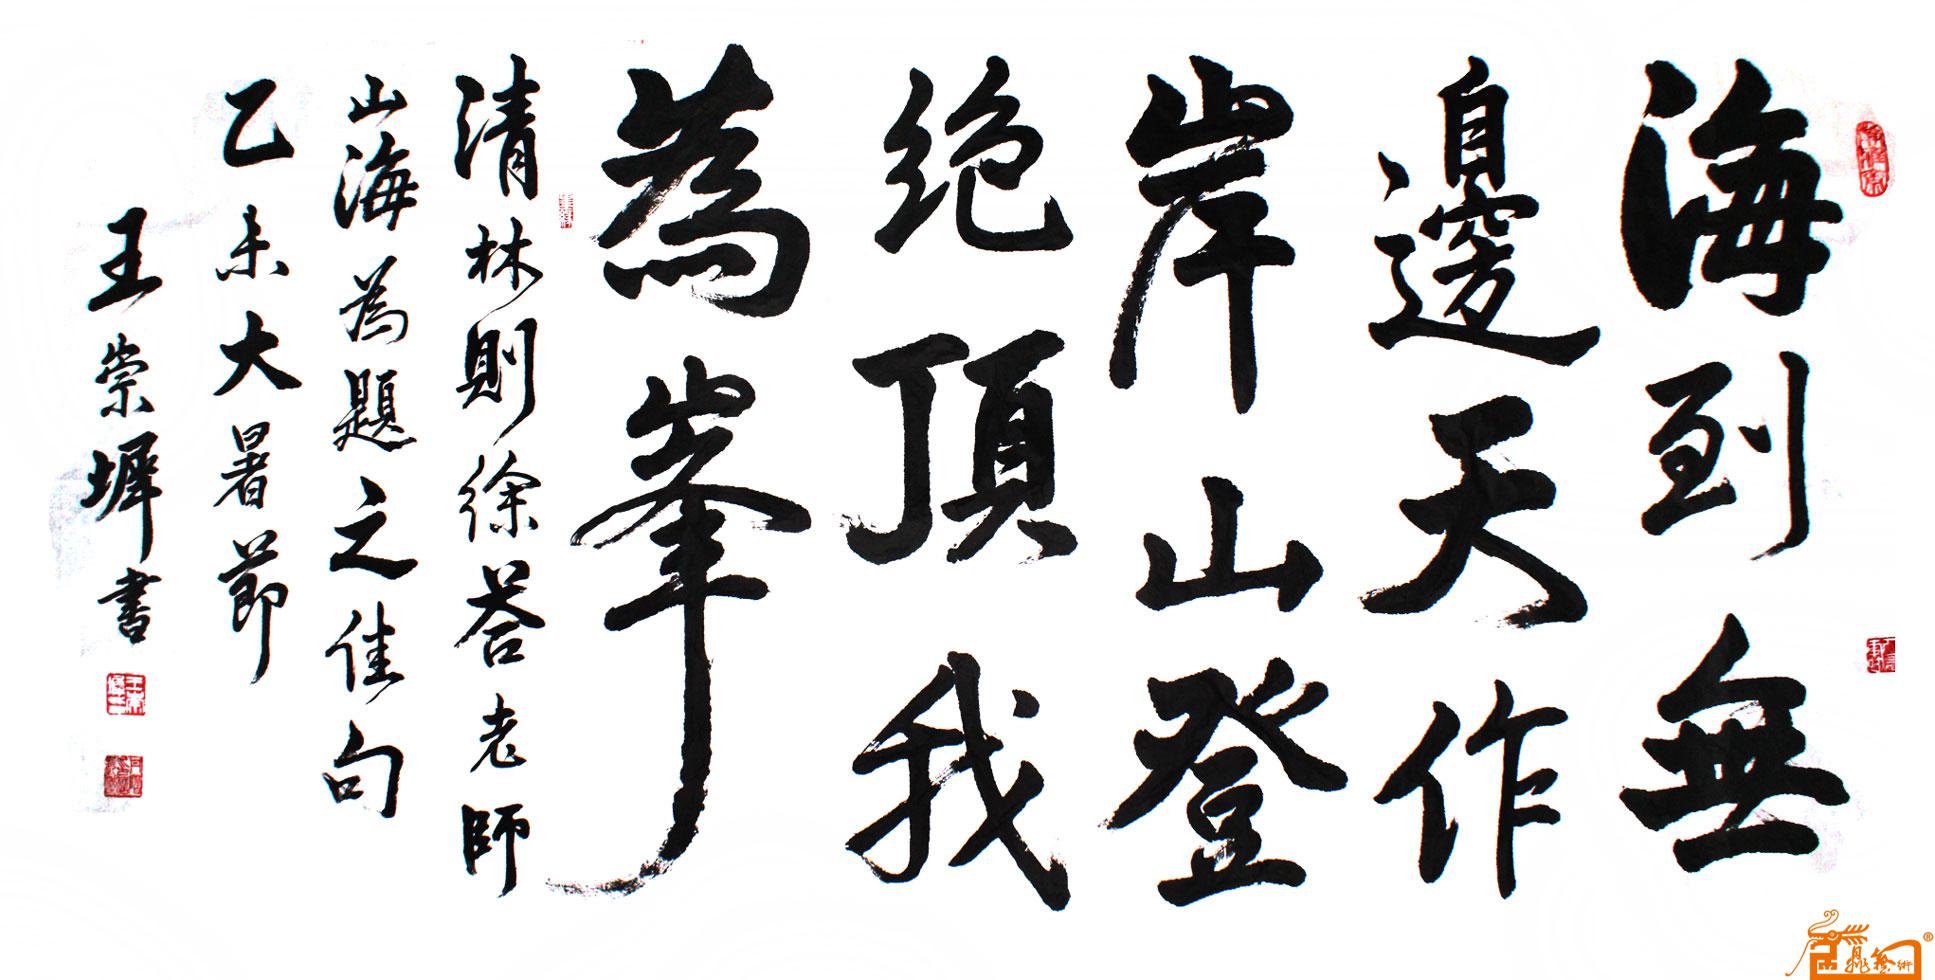 海到無
邊天作
岸山登
绝頂我
為峯
清林則徐荅老師
山海為題之佳句
乙未大暑節
王崇墀書